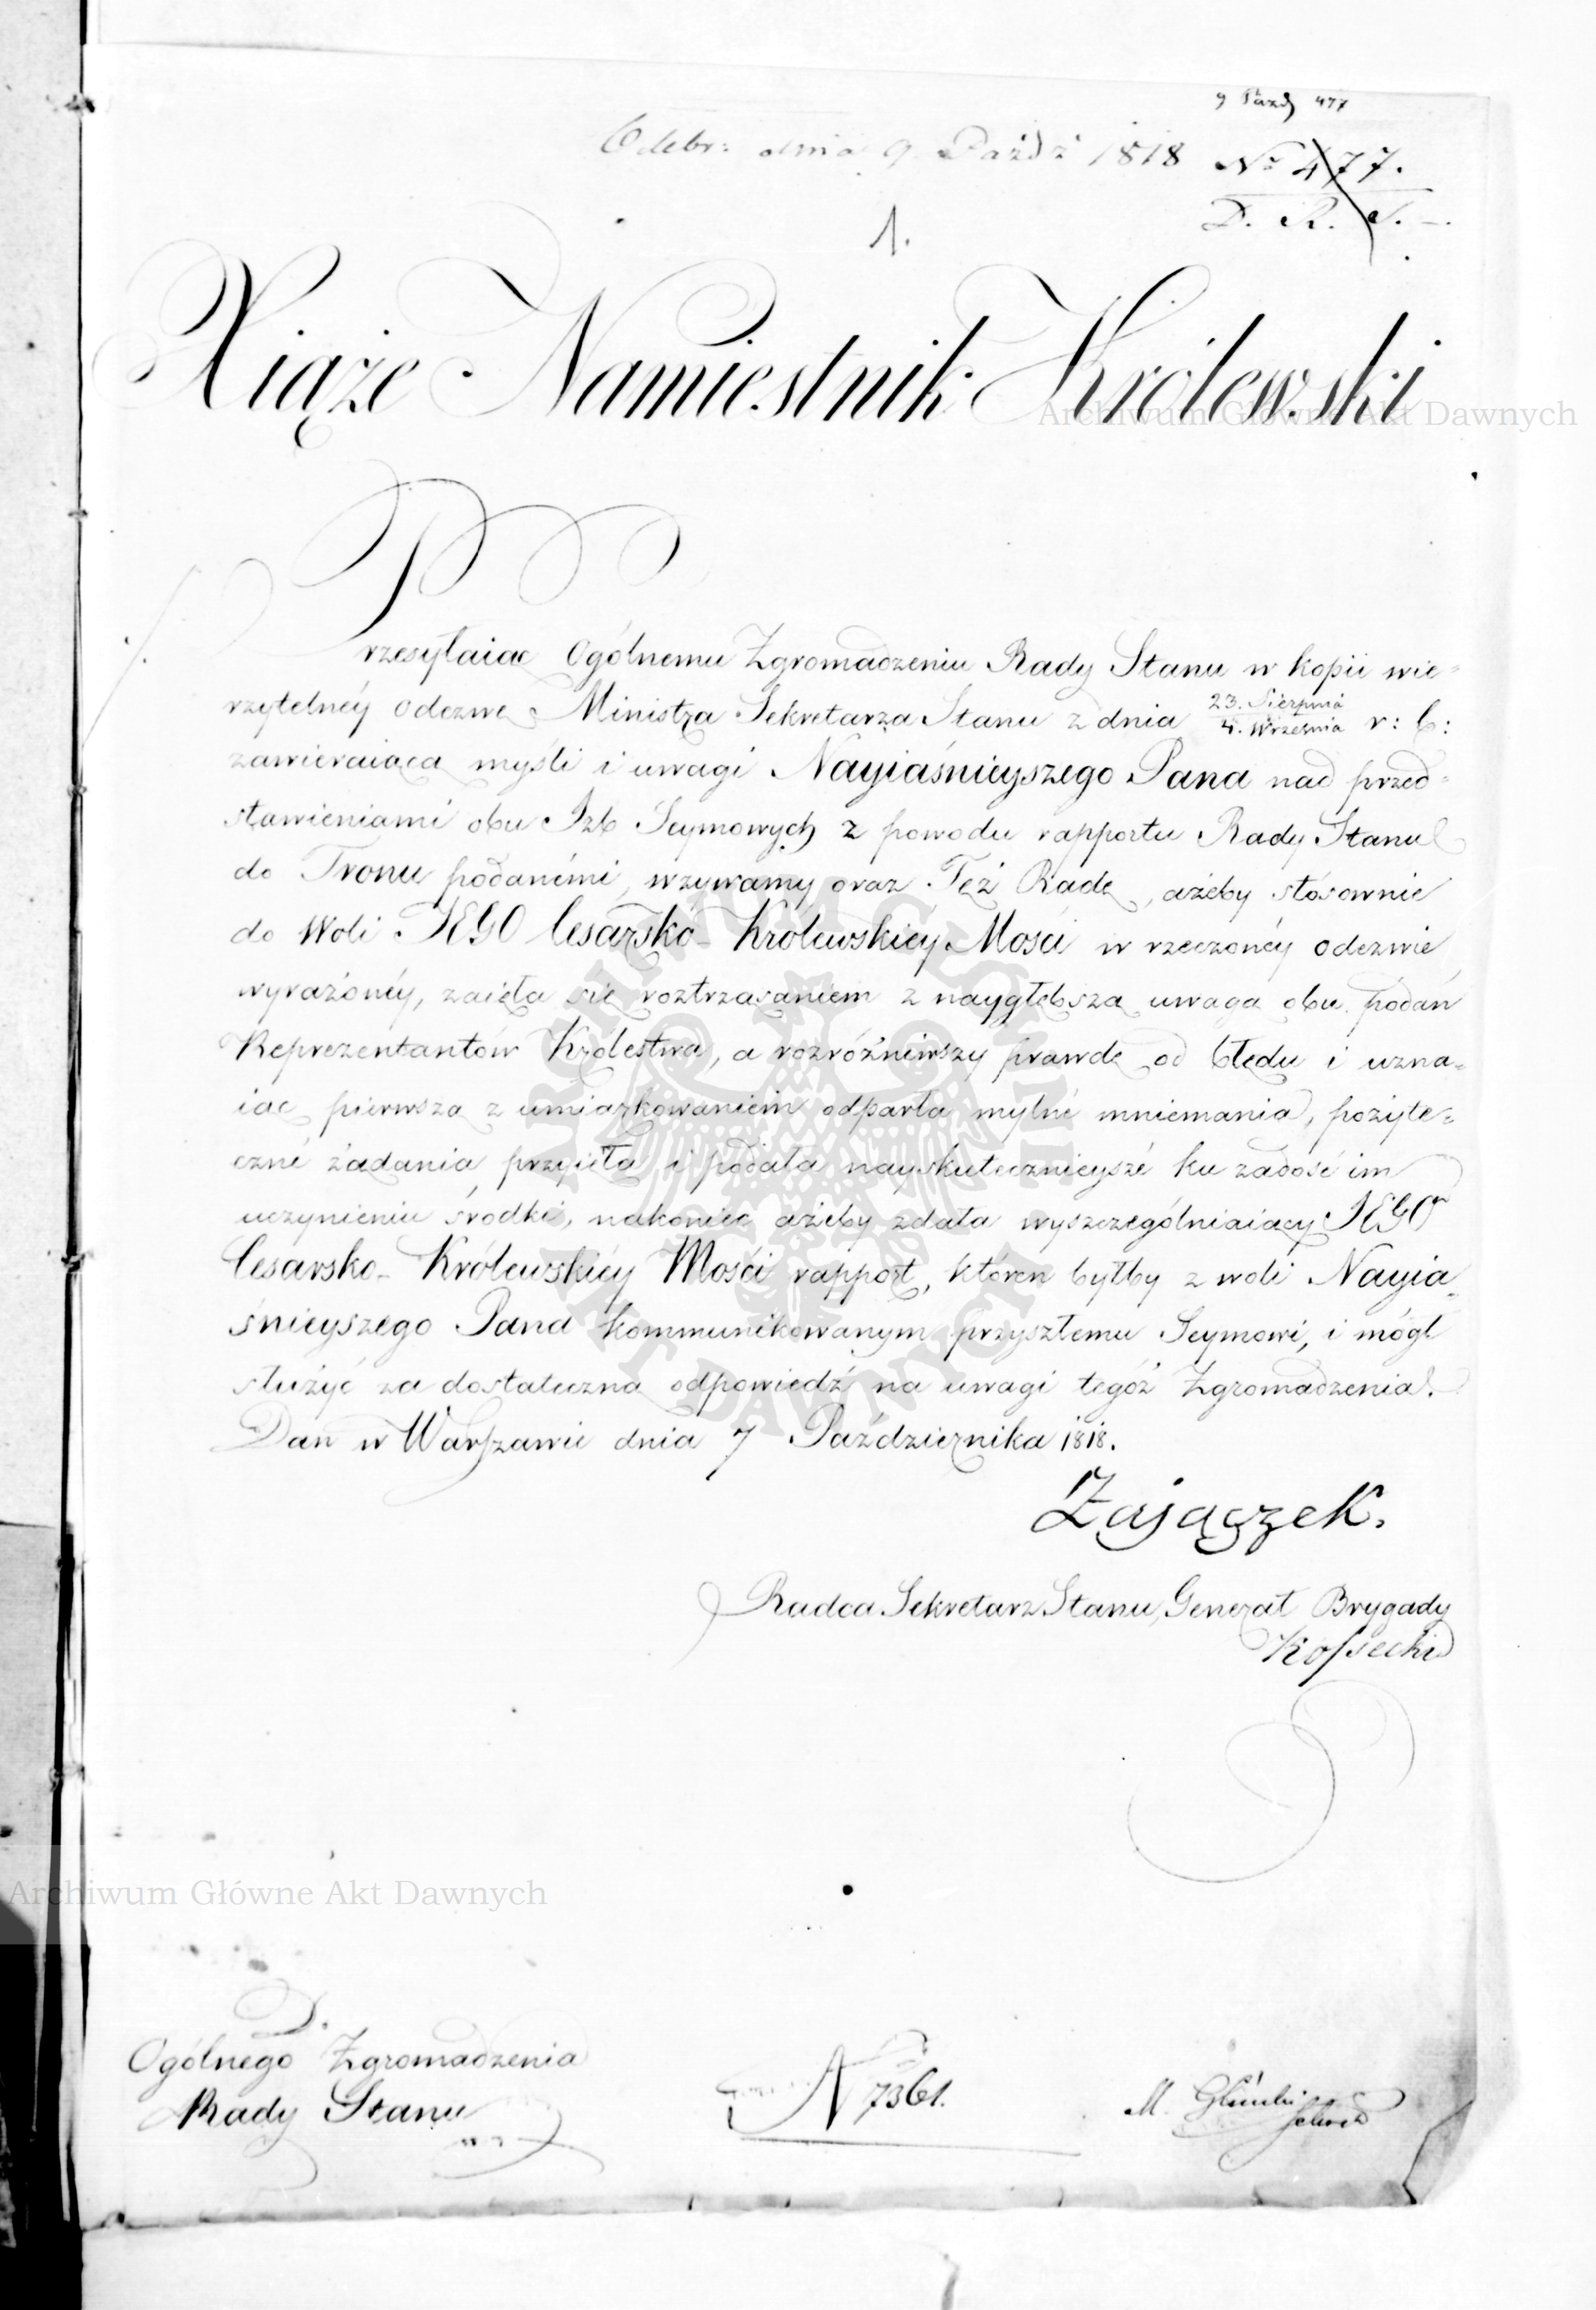 9 Pazd 477
Odebr: dnia 9. Paźdź 1818 No 477.
D. R. S.
1.
Xiąże Namiestnik Królewski
Przesyłaiąc Ogólnemu Zgromadzeniu Rady Stanu w kopii wie=
rzytelnéy odezwę Ministra Sekretarza Stanu z dnia 23. Sierpnia / 4. Września r: b:
zawieraiącą myśli i uwagi Nayiaśnieyszego Pana nad przed=
stawieniami obu Izb Seymowych z powodu rapportu Rady Stanu
do Tronu podanémi, wzywamy oraz Też Radę, ażeby stósownie
do Woli JEGO Cesarsko-Królewskiéy Mości w rzeczonéy odezwie
wyrażonéy, zaięła się roztrząsaniem z naygłębszą uwagą obu podań
Reprezentantów Królestwa, a rozróżniwszy prawdę od błędu i uzna=
iąc pierwszą z umiarkowaniem odparła mylné mniemania, pożyte=
czné żądania przyięła i podała nayskutecznieyszé ku zadość im
uczynieniu środki, nakoniec ażeby zdała wyszczególniaiący JEGO
Cesarsko-Królewskiéy Mości rapport, któren byłby z woli Nayia=
śnieyszego Pana kommunikowanym przyszłemu Seymowi, i mógł
służyć za dostateczną odpowiedź na uwagi tegóż Zgromadzenia.
Dan w Warszawie dnia 7 Października 1818.
Zajączek.
Radca Sekretarz Stanu, Generał Brygady
Kossecki
D.
Ogólnego Zgromadzenia
Rady Stanu
N 7361.
M.
Archiwum Główne Akt Dawnych
Archiwum Główne Akt Dawnych
ARCHIWUM GŁÓWNE AKT DAWNYCH